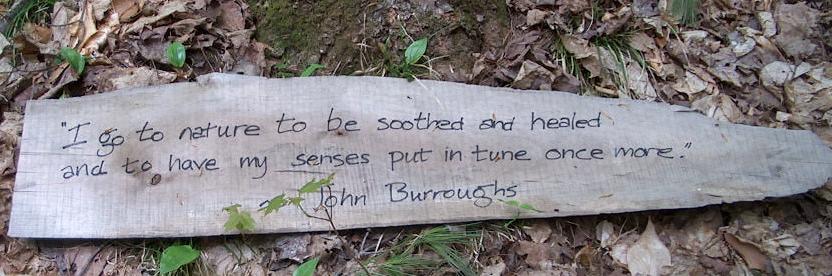 "I go to nature to be soothed and healed
and to have my senses put in tune once more."
~ John Burroughs